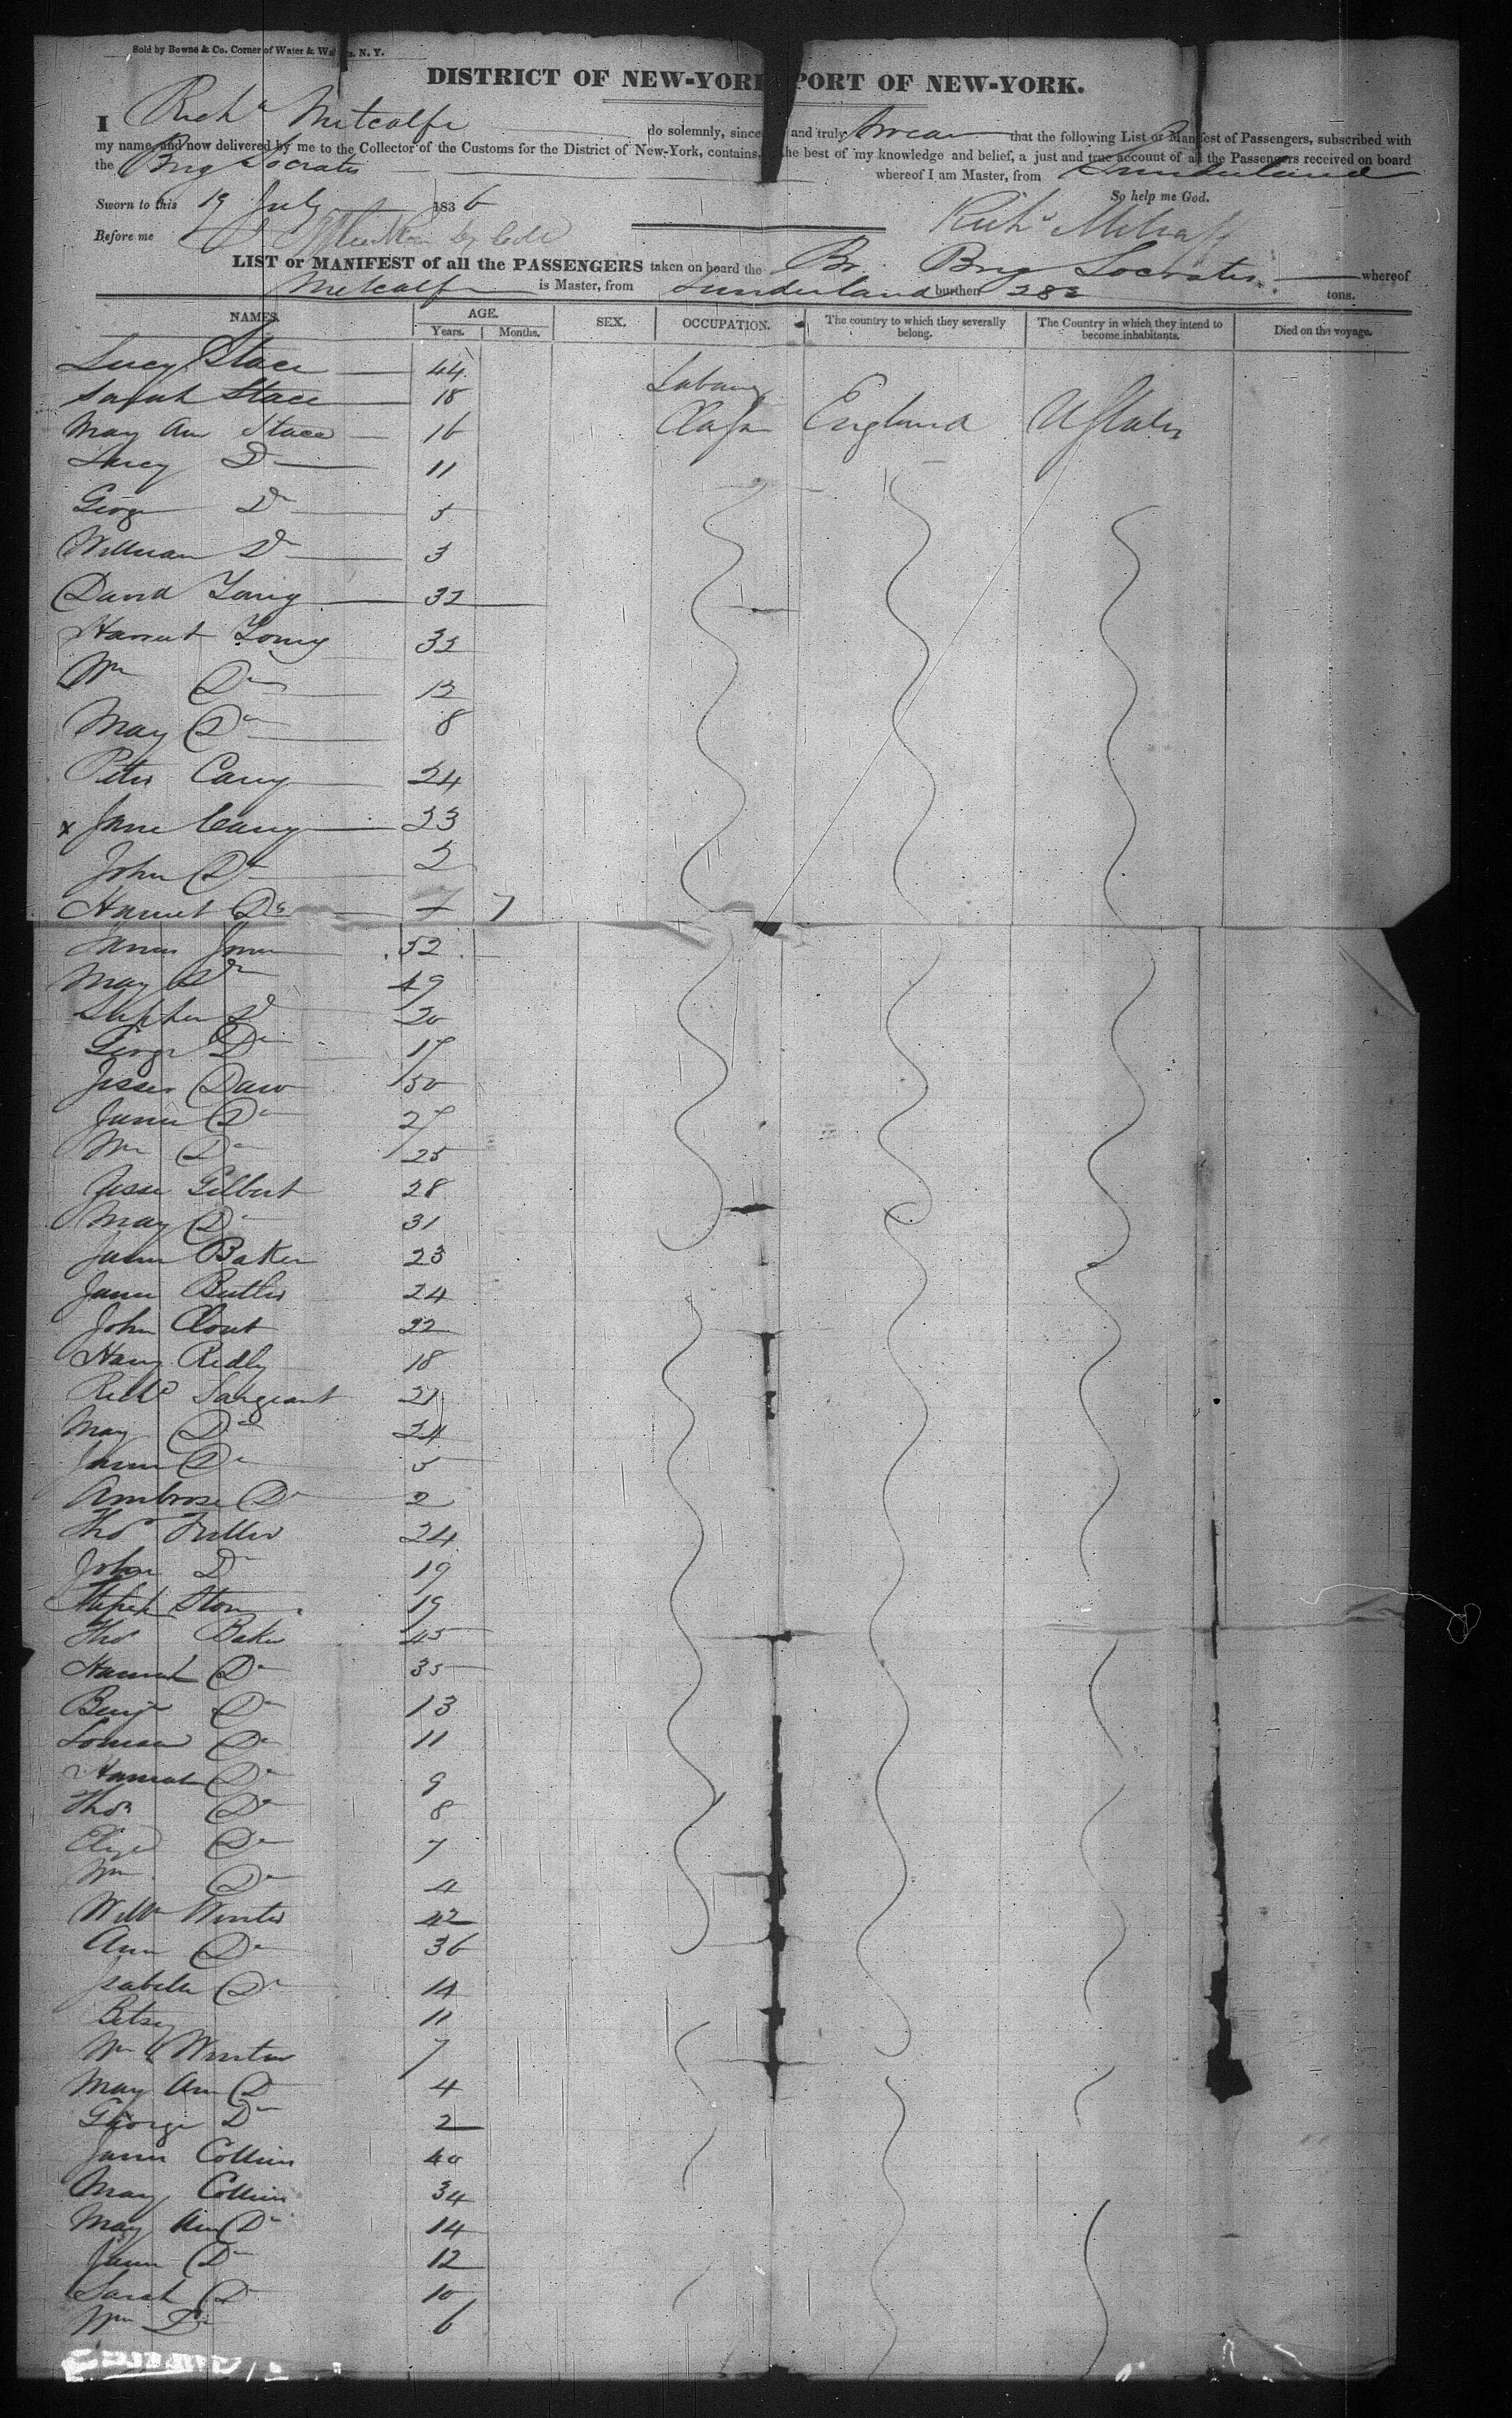 Sold by Bowne & Co. Corner of Water & N. Y.
DISTRICT OF NEW-YORK PORT OF NEW-YORK.
I Richd Metcalfe do solemnly, since and truly swear that the following List or Manifest of Passengers, subscribed with
my name, and now delivered by me to the Collector of the Customs for the District of New-York, contains, the best of my knowledge and belief, a just and true account of all the Passengers received on board
the Brig Socrates whereof I am Master, from Sunderland
So help me God.
Sworn to this 19 July 1836
Richd Metcalf
Before me
LIST or MANIFEST of all the PASSENGERS taken on board the Br. Brig Socrates whereof
Metcalfe is Master, from Sunderland burthen 282 tons.
NAMES. AGE. SEX. OCCUPATION. The country to which they severally belong. The Country in which they intend to become inhabitants. Died on the voyage.
Years. Months.
Lucy Stace 44
Sarah Stace 18 Labourg
Mary Ann Stace 16 Class England UStates
Lucy Do 11
George Do 5
William Do 3
David Young 32
Harriet Young 32
Wm Do 12
Mary Do 8
Peter Carey 24
x Jane Carey 23
John Do 2
Harriet Do 7 7
James Jones 52
Mary Do 49
Stephen Do 20
George Do 17
Jesse Daw 50
James Do 27
Wm Do 25
Jesse Gilbert 28
Mary Do 31
James Baker 23
James Butler 24
John Clout 22
Harry Redly 18
Richd Sargeant 21
Mary Do 24
James Do 5
Ambrose Do 2
Thos Fuller 24
John Do 19
Stephen Stone 19
Thos Baker 45
Hannah Do 35
Benjn Do 13
Louisa Do 11
Hannah Do 9
Thos Do 8
Eliza Do 7
Wm Do 4
Willm Winter 42
Ann Do 36
Isabella Do 14
Betsy 11
Wm Winter 7
Mary Ann Do 4
George Do 2
James Collins 40
Mary Collins 34
Mary Ann Do 14
James Do 12
Sarah Do 10
Wm Do 6